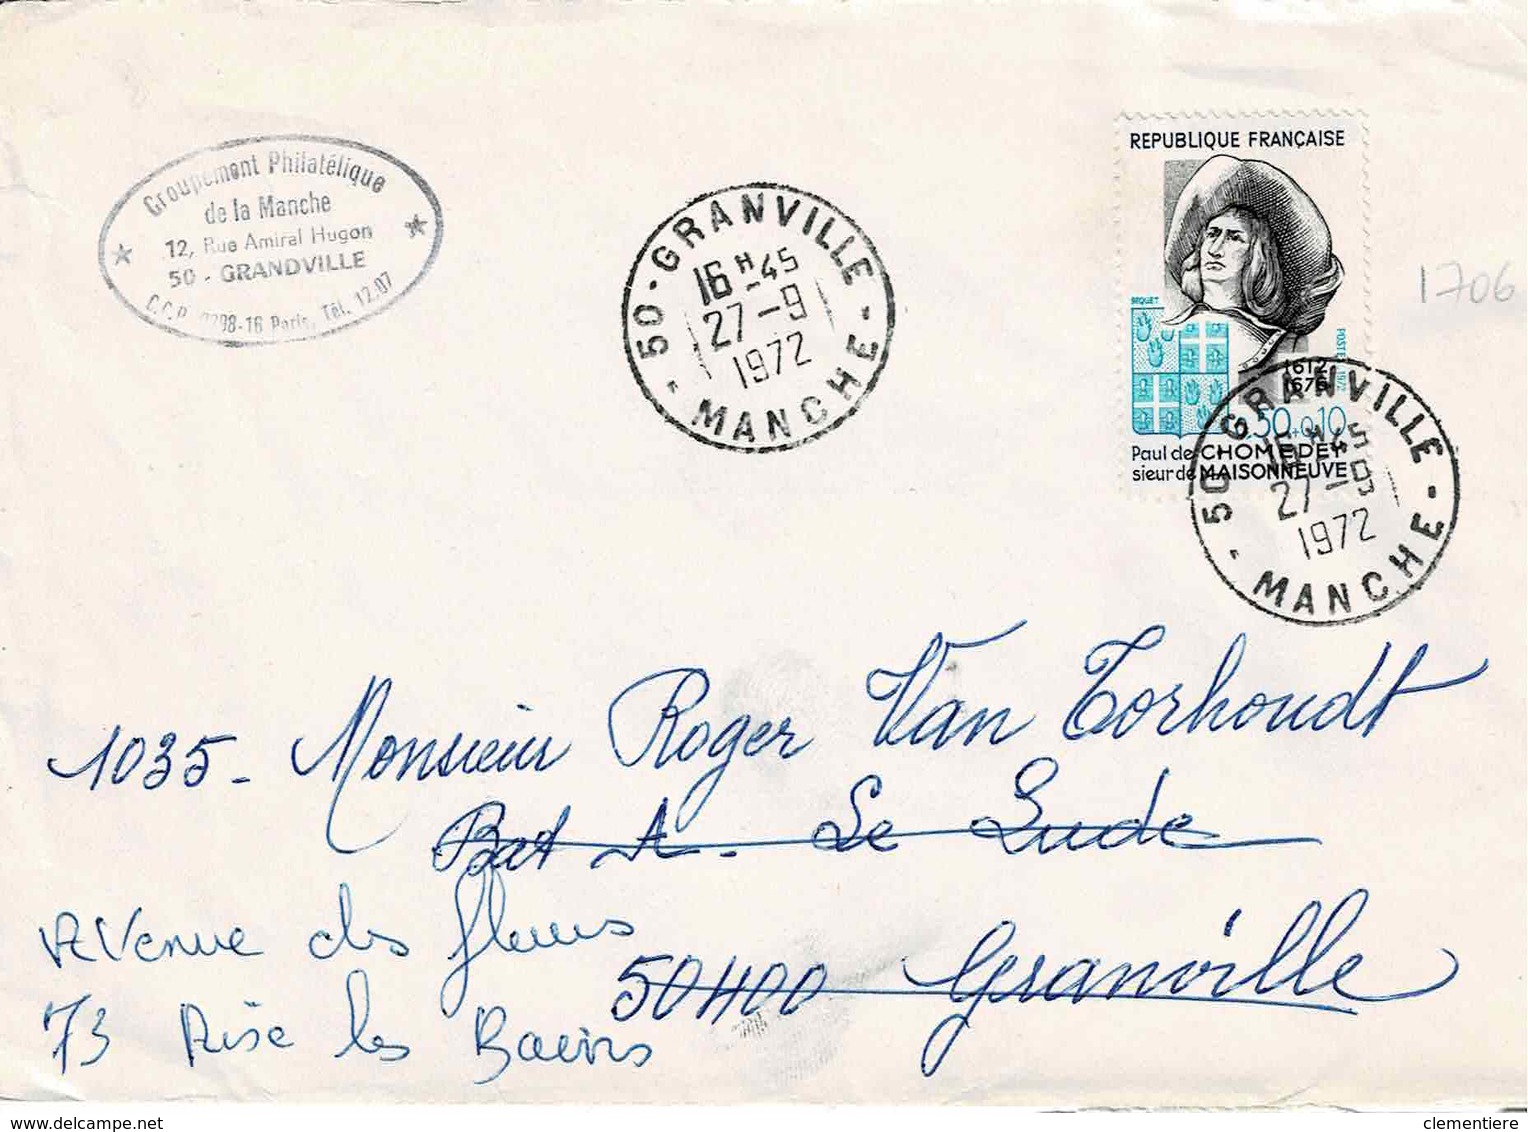 Groupement Philatélique
de la Manche
12, Rue Amiral Hugon
50 - GRANDVILLE
C.C.P. 9798-16 Paris, Tél. 12.07
50 - GRANVILLE - MANCHE -
16H-45
27-9
1972
REPUBLIQUE FRANÇAISE
BEQUET
POSTES 1972
1612
1676
0,50+0,10
Paul de CHOMEDEY
sieur de MAISONNEUVE
50 - GRANVILLE - MANCHE -
16H45
27-9
1972
1706
1035 - Monsieur Roger Van Torhoudt
Bat A. Le Lude
Avenue des fleurs
50400 Granville
73 Aise les Bains
www.delcampe.net
clementiere